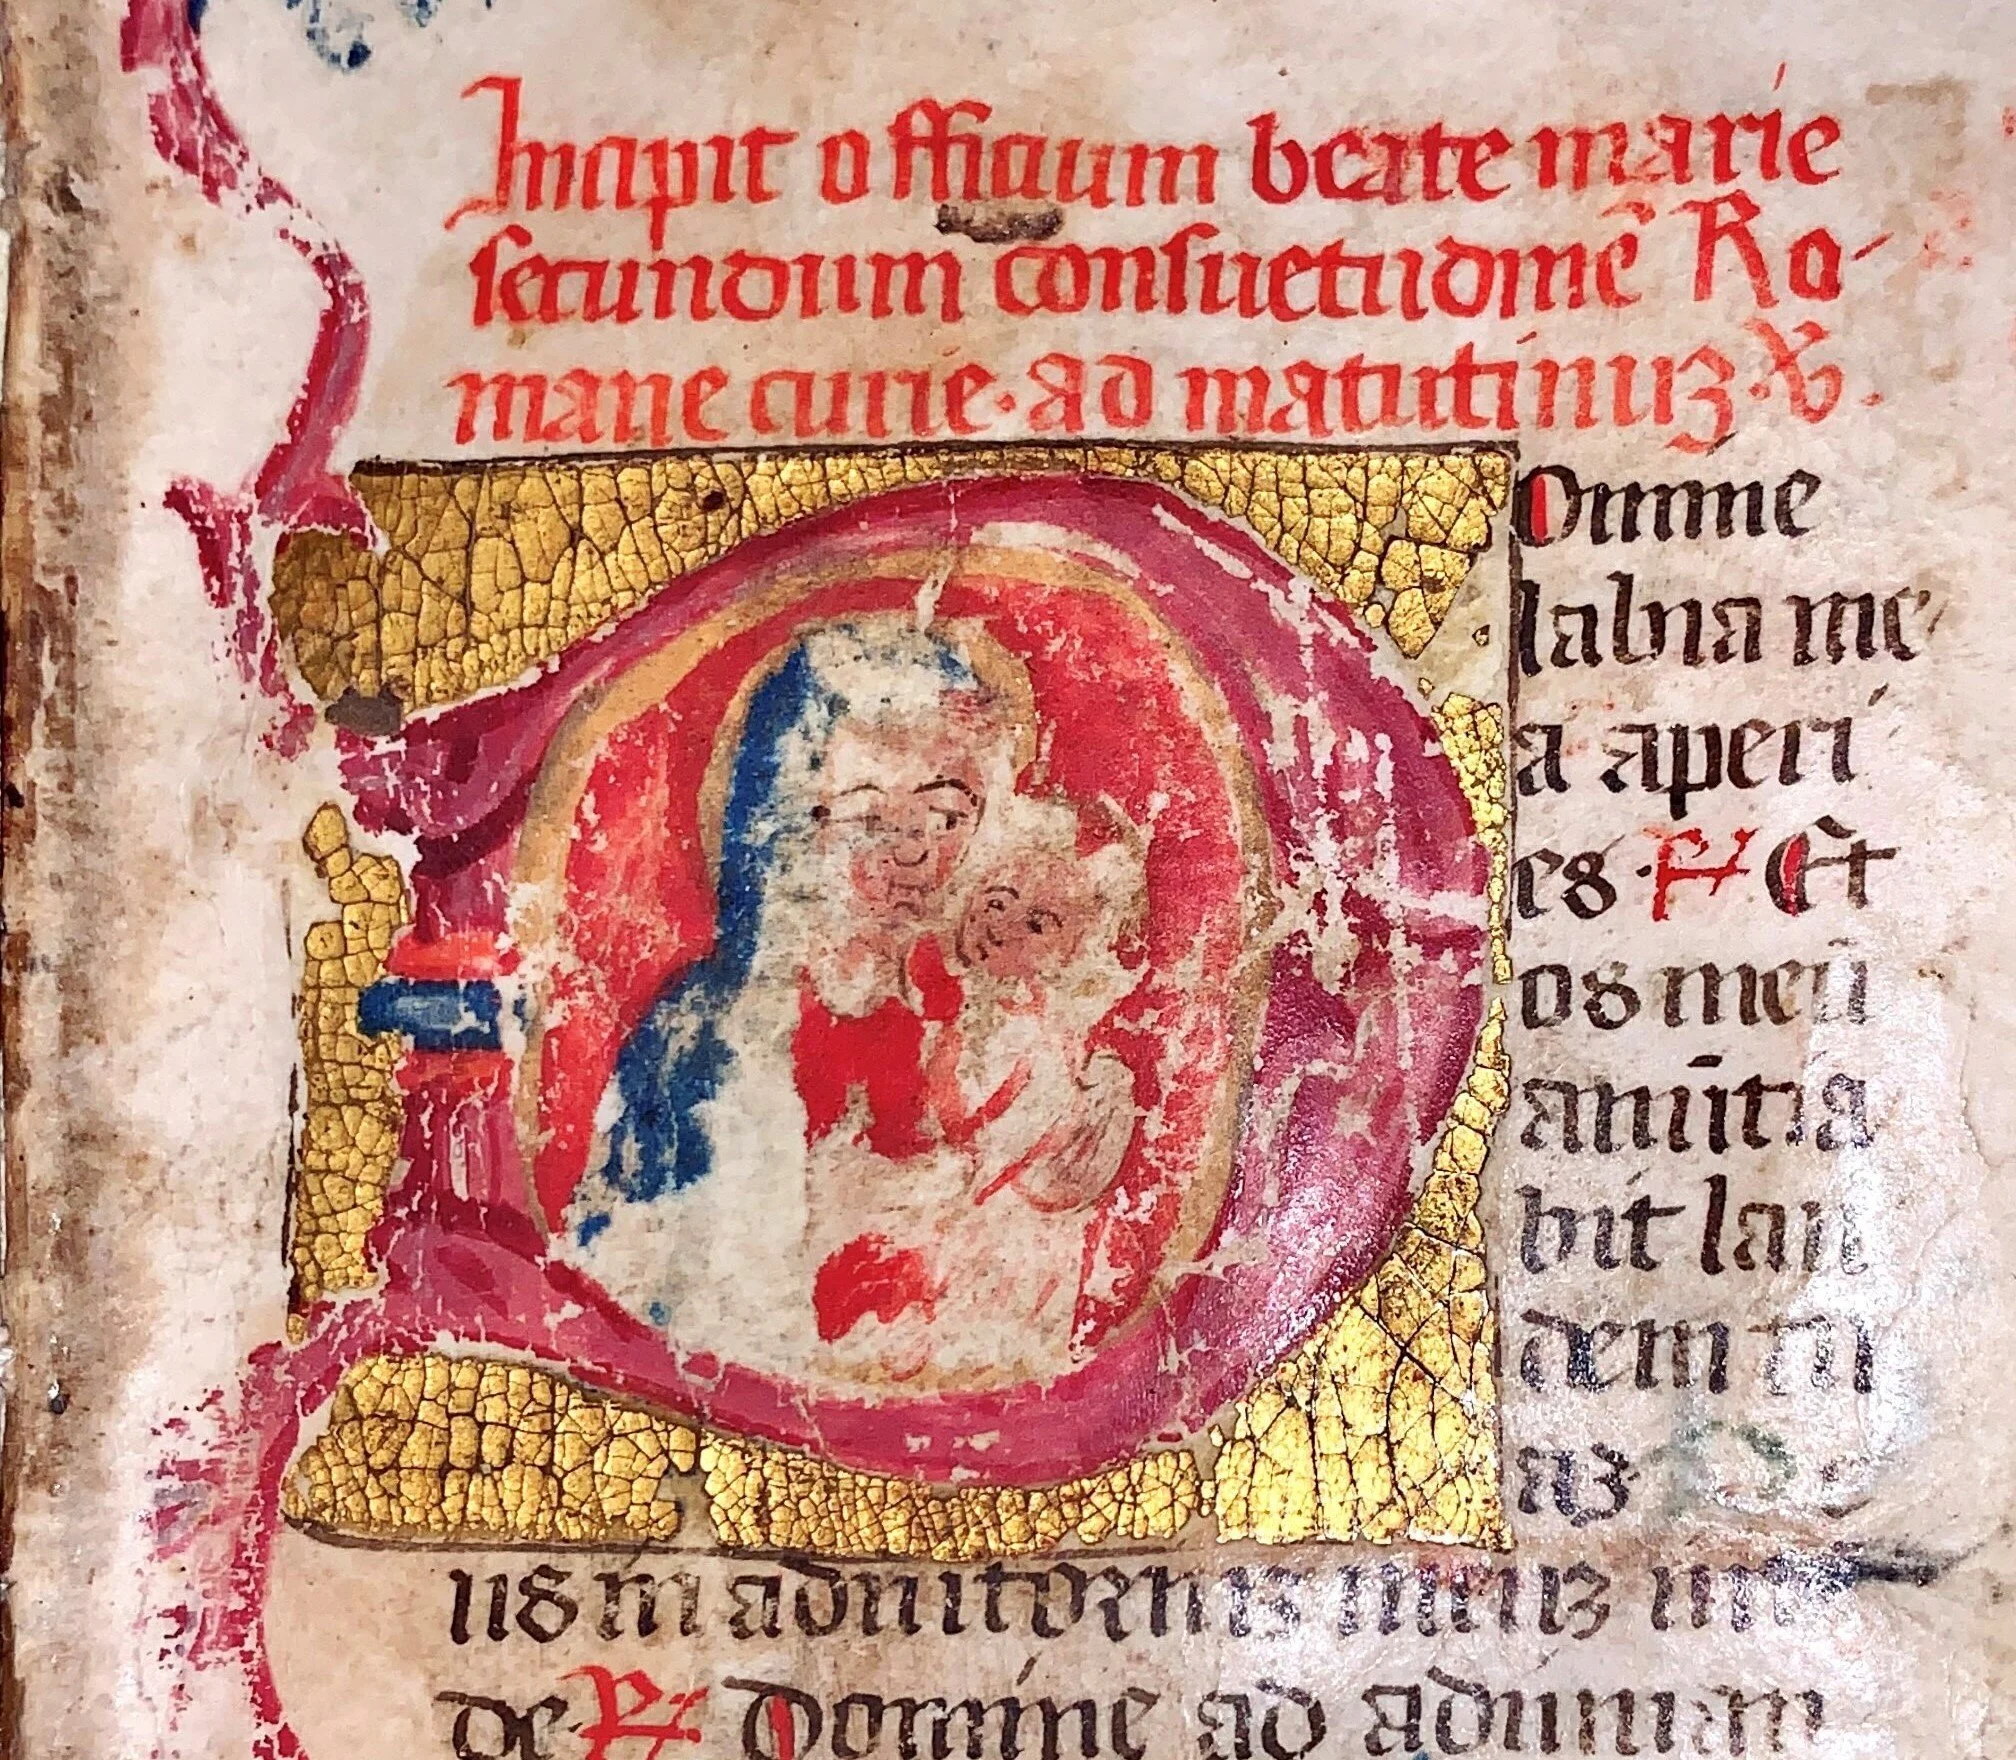 Incipit officium beate marie
secundum consuetudinē Ro-
mane curie. ad matutinuʒ. V̶.
Omine
labia me
a aperi
es. ℟ Et
os meū
anūtia
bit lau
dem tu
aʒ D e
us in adiutoriuʒ meuʒ intē
de ℟. Domine ad adiuuan